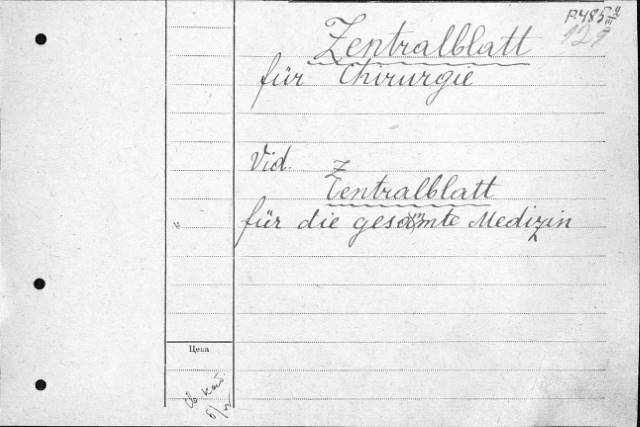 P.485
129
Zentralblatt
für Chirurgie
Vid.
Zentralblatt
für die gesamte Medizin
№
Цена